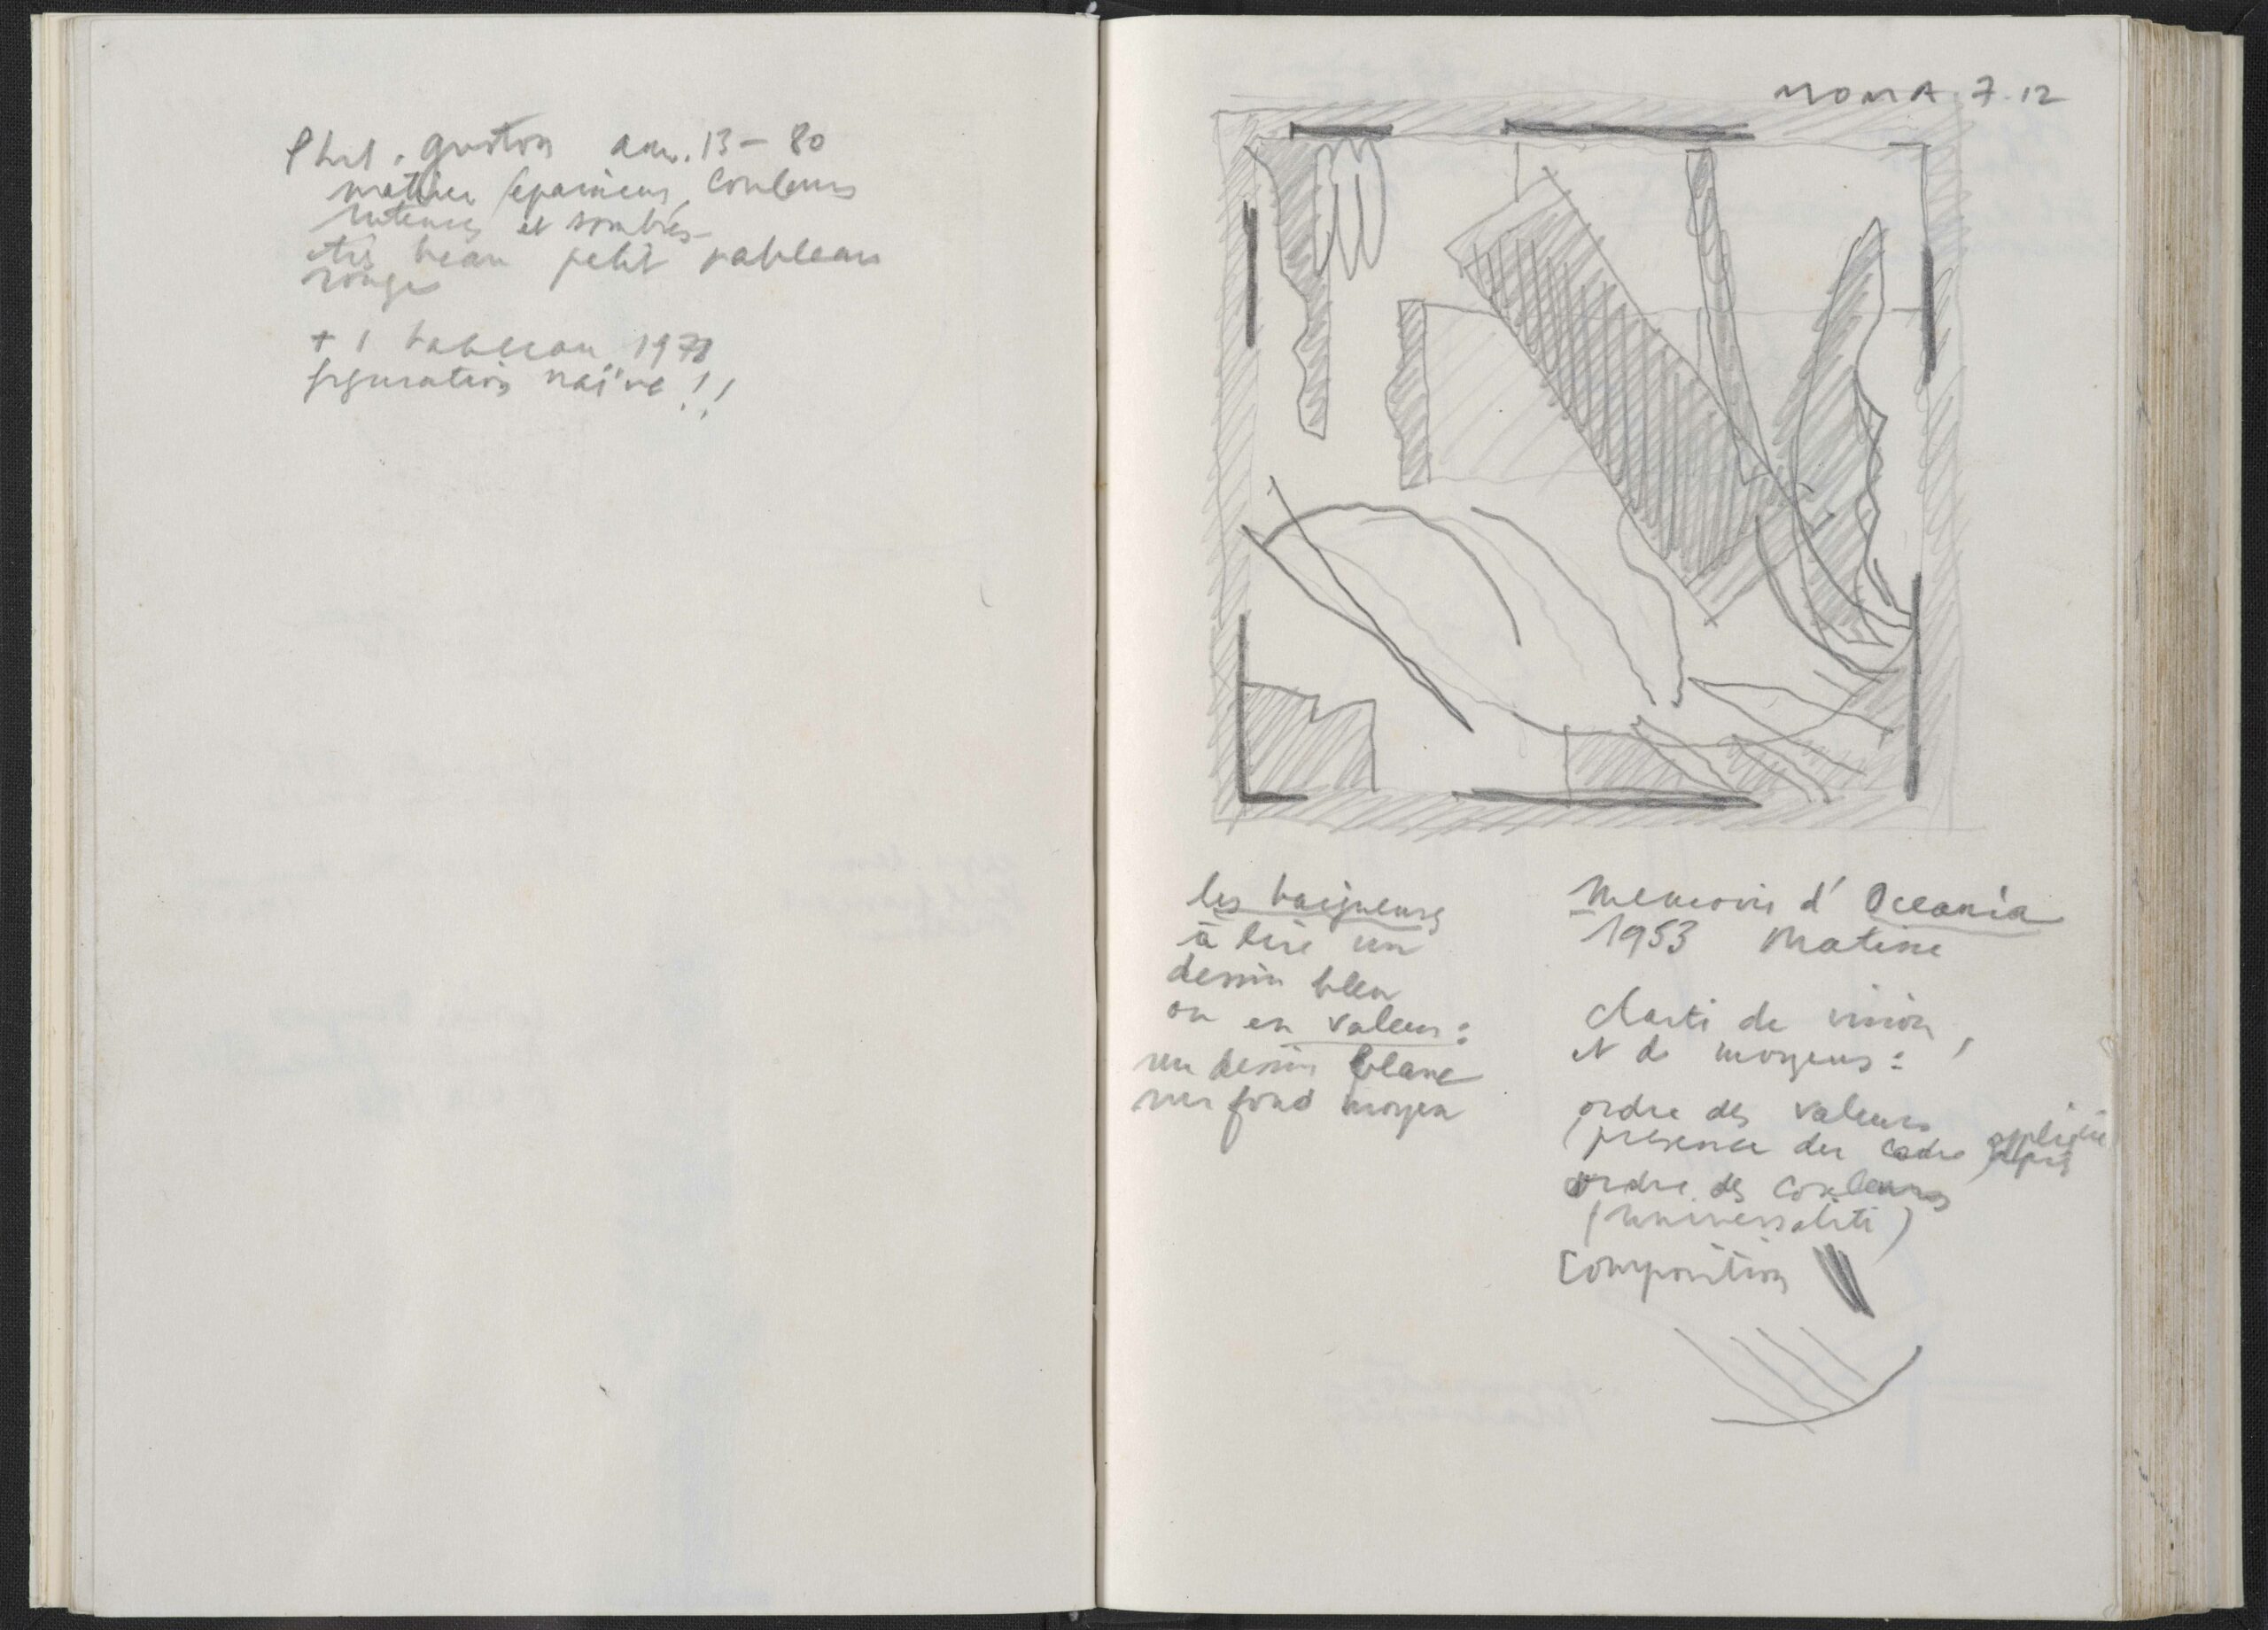 Phil. Guston am. 13 – 80
matière épaisseur, couleurs
intenses et sombres –
très beau petit tableau
rouge
+ 1 tableau 1978
figuration naïve !!
MOMA. 7.12
les baigneurs
à lire un
dessin bleu
ou en valeurs :
un dessin blanc
sur fond moyen
Memoire d' Oceania
1953 Matisse
clarté de vision,
et de moyens :
ordre des valeurs
(présence du cadre appliqué
après)
ordre des couleurs
(universalité)
Composition